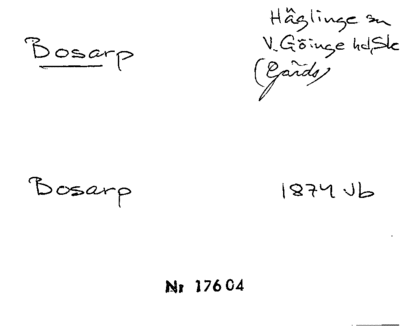 Bosarp
Häglinge sn
V. Göinge hd, Sk
(Gärds)
Bosarp
1874 Jb
Nr 17604